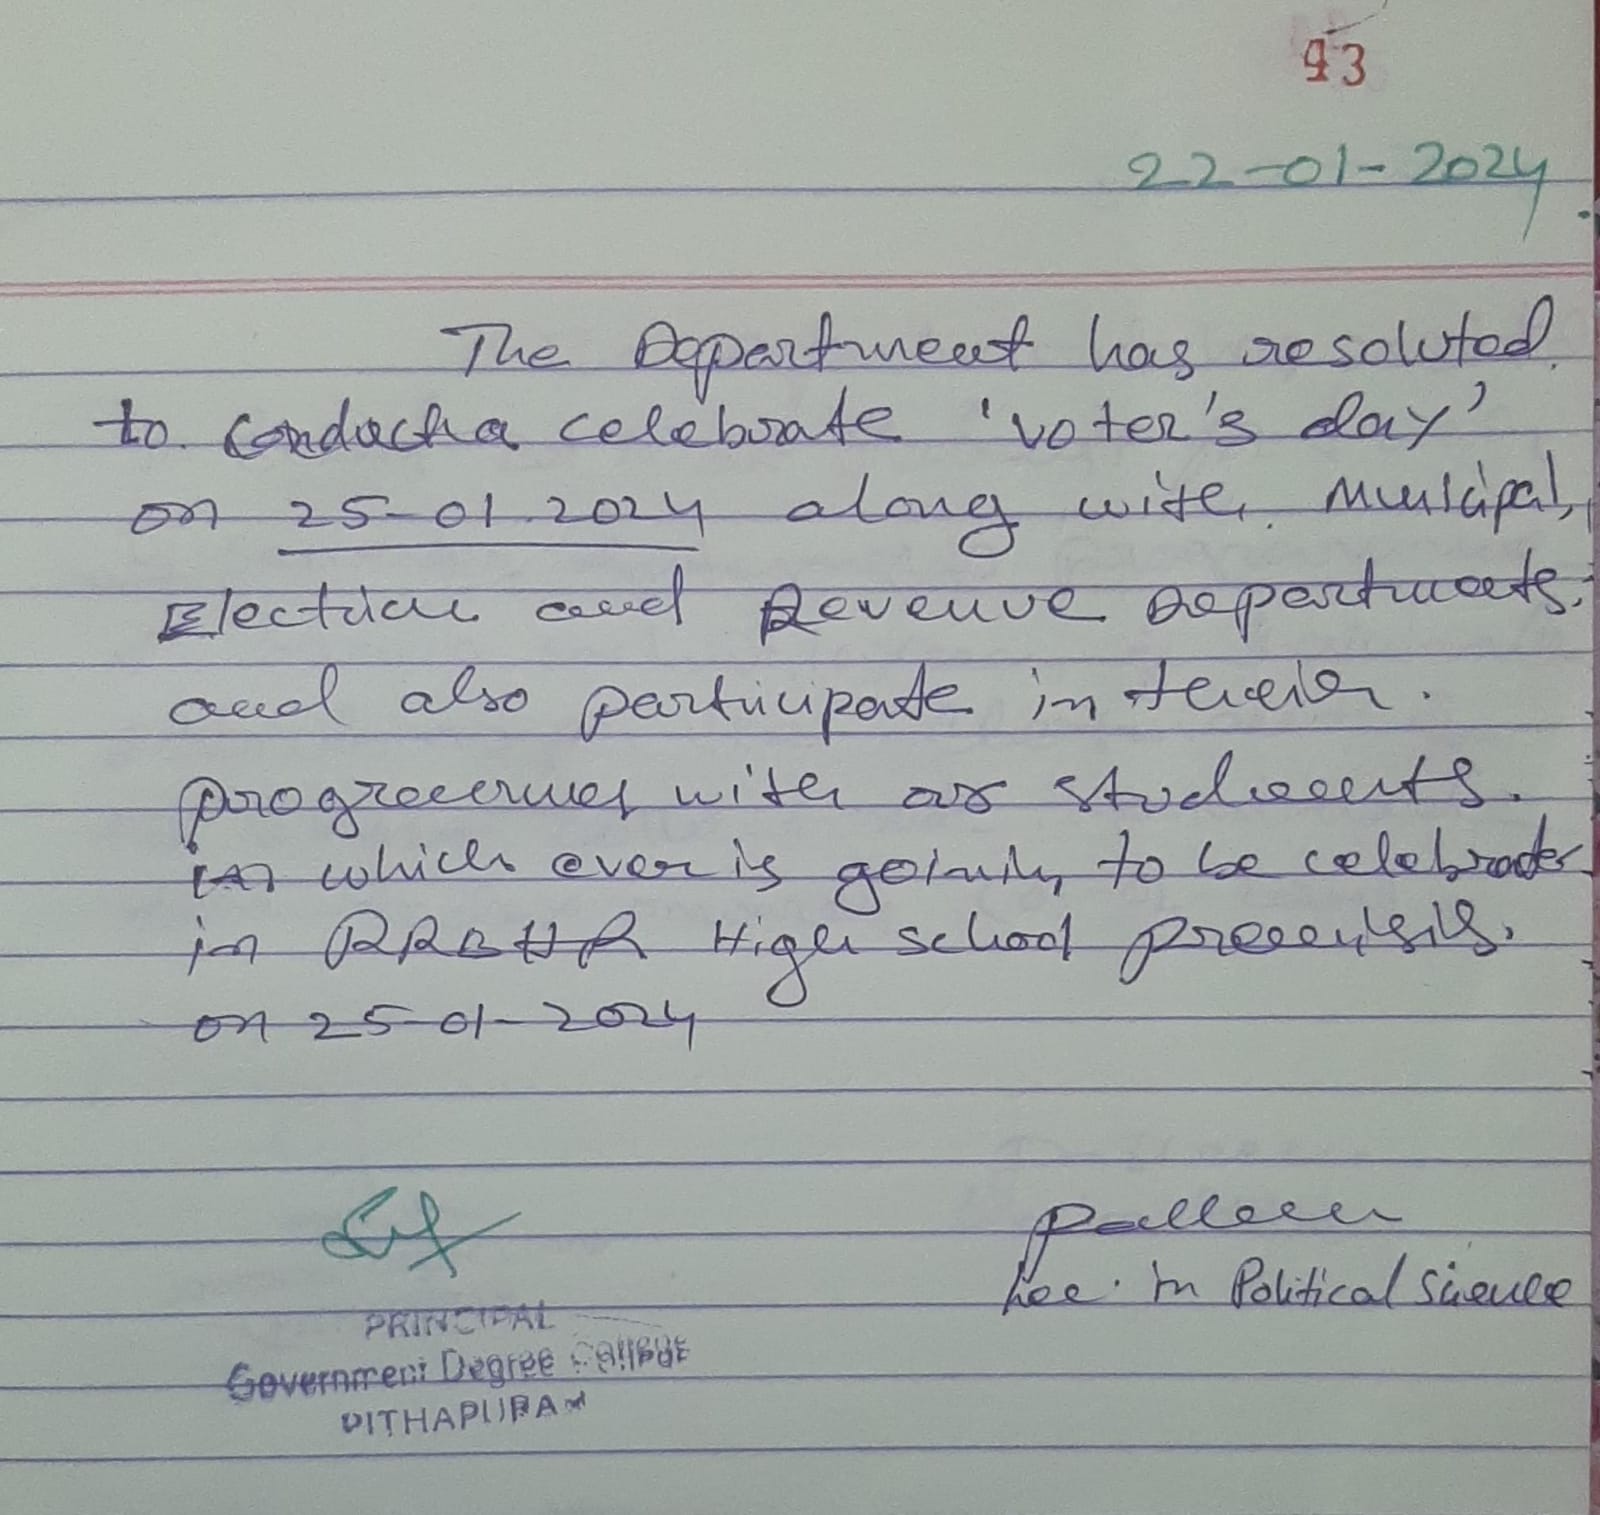 93
22-01-2024
The Department has resoluted
to conduct a celebrate 'voter's day'
on 25-01.2024 along with Municipal,
Election and Revenue Departments,
and also participate in their
programmes with our students.
in which ever is going to be celebrate
in RRBHR High school premises.
on 25-01-2024
Lec. in Political Science
PRINCIPAL
Government Degree College
PITHAPURAM